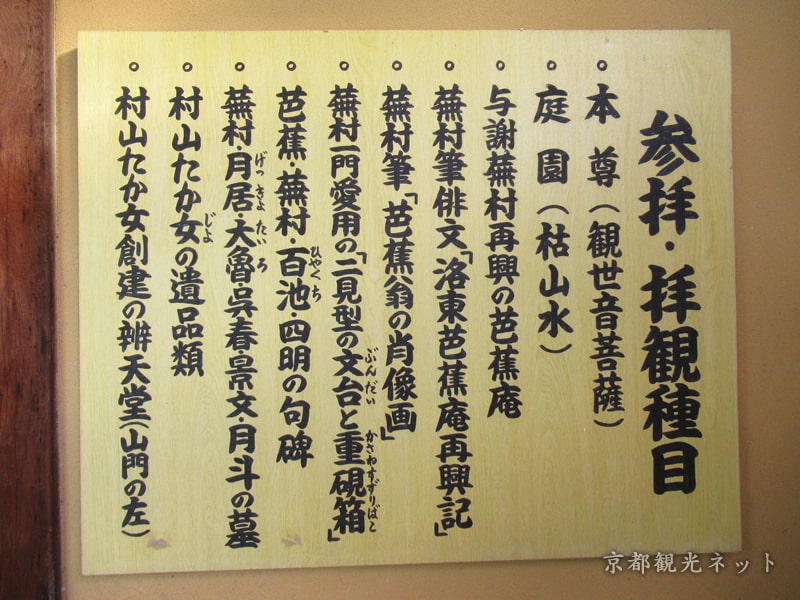 参拝・拝観種目
。本尊（観世音菩薩）
。庭園（枯山水）
。与謝蕪村再興の芭蕉庵
。蕪村筆俳文「洛東芭蕉庵再興記」
。蕪村筆「芭蕉翁の肖像画」
。蕪村一門愛用の「二見型の文台と重硯箱」
ぶんだい
かさねすずりばこ
。芭蕉・蕪村・百池・四明の句碑
ひゃくち
。蕪村・月居・大魯・呉春・景文・月斗の墓
げっきょ
たいろ
。村山たか女の遺品類
じょ
。村山たか女創建の辨天堂（山門の左）
京都観光ネット